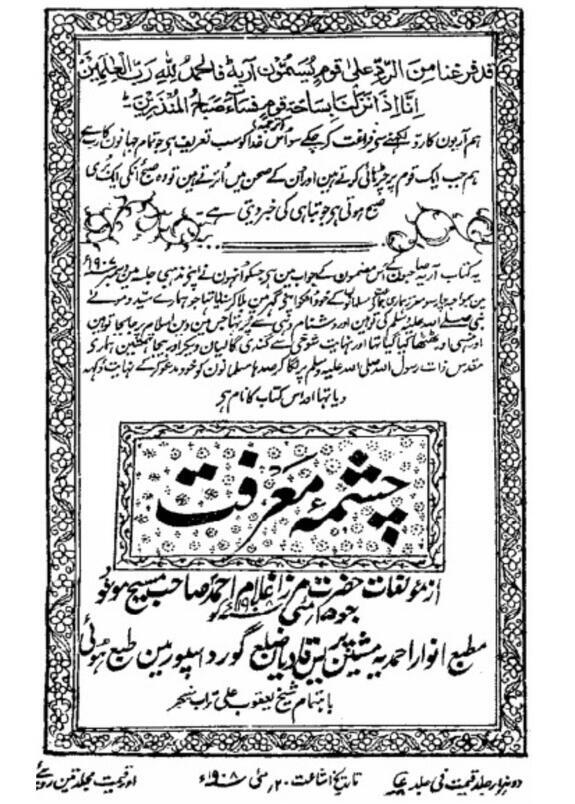 قد فرغنا من الرد علی قوم یسمّون آریۃ فالحمد للّٰہ ربّ العٰلمین
انّا اذا نزلنا بساحۃ قوم فساء صباح المنذرین
(ترجمہ)
ہم آریوں کا رد لکھنے سے فراغت کر چکے سو اُس خدا کو سب تعریف ہی جو تمام جہانوں کا رب ہے
ہم جب ایک قوم پر چڑہائی کرتے ہین اور اُن کے صحن میں اُترتے ہین تو وہ صبح اُنکی ایک بُری
صبح ہوتی ہی جو تباہی کی خبر دیتی ہے
یہ کتاب آریہ صاحبوں کے اُس مضمون کے جواب مین ہی جسکو اُنہون نے اپنے مذہبی جلسہ مین دسمبر ۱۹۰۷ء
مین ہماری جماعت کے مسلمانوں کو خود اپنے گھر مین بلا کر سنایا تہا جو ہمارے سیّد و مولےٰ
نبی صلے اللہ علیہ وسلم کی توہین اور دشنام دہی سے پُر تہا جس مین دین اسلام پر جابجا توہین
اور ہنسی اور ٹھٹھا کیا گیا تہا اور نہایت شوخی سے گندی گالیان دیکر اور بیجا تہمتین ہماری
مقدس ذات رسول اللہ صلی اللہ علیہ وسلم پر لگا کر صدہا مسلمانون کو خود مدعو کر کے نہایت دُکہہ
دیا تہا اور اس کتاب کا نام ہی
چشمۂ معرفت
از مؤلفات حضرت مرزا غلام احمد صاحب مسیح موعود
جو ۱۵ مئی ۱۹۰۸ء کو
مطبع انوار احمدیہ مشین پریس قادیان ضلع گورداسپور مین طبع ہوئی
باہتمام شیخ یعقوب علی تراب منیجر
دو ہزار جلد قیمت فی جلد
تاریخ اشاعت ۲۰؍ مئی ۱۹۰۸ء
اور قیمت مجلد تین روپے